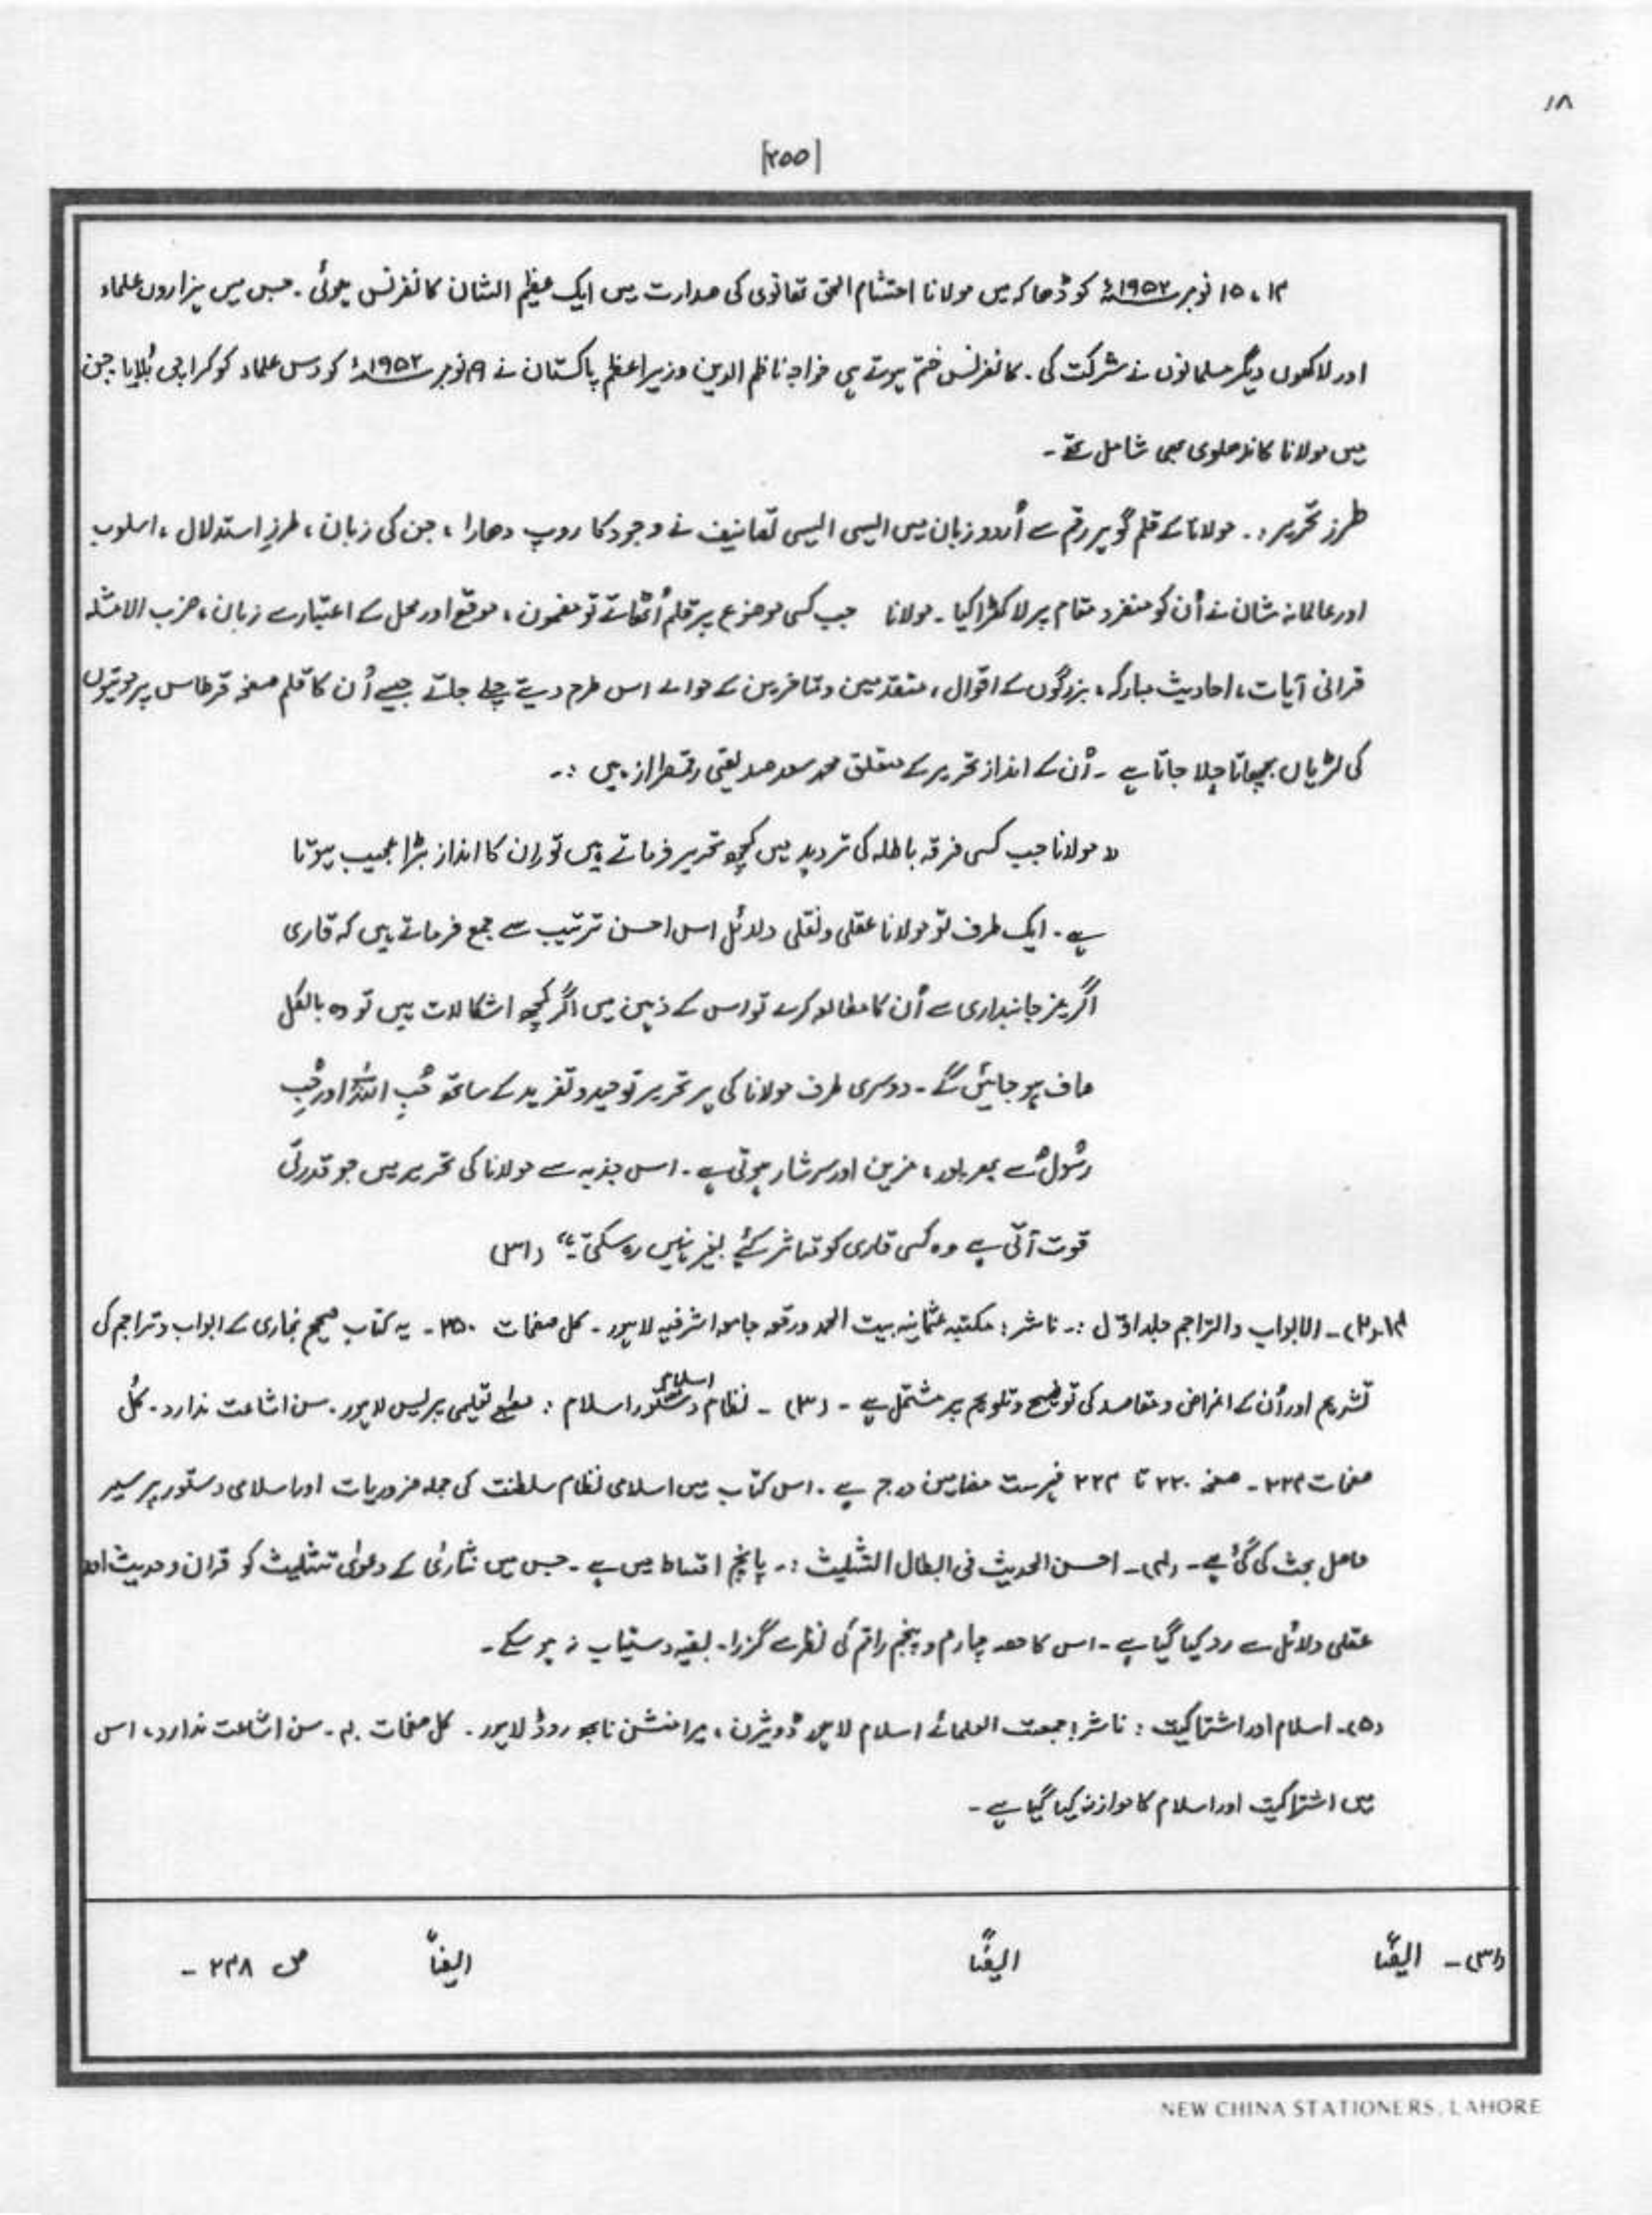 ۱۸
[۲۵۵]
۱۴، ۱۵ نومبر ۱۹۵۲ء کو ڈھاکہ میں مولانا احتشام الحق تھانوی کی صدارت میں ایک عظیم الشان کانفرنس ہوئی۔ جس میں ہزاروں علماء
اور لاکھوں دیگر مسلمانوں نے شرکت کی۔ کانفرنس ختم ہوتے ہی خواجہ ناظم الدین وزیراعظم پاکستان نے ۱۹ نومبر ۱۹۵۲ء کو دس علماء کو کراچی بُلایا جن
میں مولانا کاندھلوی بھی شامل تھے۔
طرز تحریر :۔ مولانا کے قلم گوہر رقم سے اُردو زبان میں ایسی ایسی تصانیف نے وجود کا روپ دھارا، جن کی زبان، طرزِ استدلال، اسلوب
اور عالمانہ شان نے اُن کو منفرد مقام پر لا کھڑا کیا۔ مولانا جب کسی موضوع پر قلم اُٹھاتے تو مضمون، موقع اور محل کے اعتبار سے زبان، ضرب الامثلہ
قرانی آیات، احادیث مبارکہ، بزرگوں کے اقوال، متقدمین و متاخرین کے حوالے اس طرح دیتے چلے جاتے جیسے اُن کا قلم صفحہ قرطاس پر موتیوں
کی لڑیاں بچھاتا چلا جاتا ہے۔ اُن کے انداز تحریر کے متعلق محمد سعد صدیقی رقمطراز ہیں :۔
" مولانا جب کسی فرقہ باطلہ کی تردید میں کچھ تحریر فرماتے ہیں تو ان کا انداز بڑا عجیب ہوتا
ہے۔ ایک طرف تو مولانا عقلی و نقلی دلائل اس احسن ترتیب سے جمع فرماتے ہیں کہ قاری
اگر غیر جانبداری سے اُن کا مطالعہ کرے تو اس کے ذہن میں اگر کچھ اشکالات ہیں تو وہ بالکل
صاف ہو جائیں گے۔ دوسری طرف مولانا کی ہر تحریر توحید و تفرید کے ساتھ حُبِ اللہ اور حُبِ
رسُول سے بھرپور، مزین اور سرشار ہوتی ہے۔ اس جذبہ سے مولانا کی تحریر میں جو قدرتی
قوت آتی ہے وہ کسی قاری کو متاثر کیٔے بغیر نہیں رہ سکتی ہے" (۳۱)
۱۴۔(۲)۔ الابواب والتراجم جلد اوّل :۔ ناشر : مکتبہ عثمانیہ بیت الحمد ورقعہ جامعہ اشرفیہ لاہور۔ کل صفحات ۳۵۰۔ یہ کتاب صحیح بخاری کے ابواب و تراجم کی
تشریح اور اُن کے اغراض و مقاصد کی توضیح و تلویح پر مشتمل ہے۔ (۳)۔ نظام اسلام دستور اسلام : مطبع تعلیمی پریس لاہور۔ سن اشاعت ندارد۔ کُل
صفحات ۲۲۴۔ صفحہ ۲۲۰ تا ۲۲۴ فہرست مضامین درج ہے۔ اس کتاب میں اسلامی نظام سلطنت کی جملہ ضروریات اور اسلامی دستور پر سیر
حاصل بحث کی گئی ہے۔ (۴)۔ احسن الحدیث فی ابطال التثلیث :۔ پانچ اقساط میں ہے۔ جس میں نثاریٰ کے دعویٰ تثلیث کو قران و حدیث اور
عقلی دلائل سے رد کیا گیا ہے۔ اس کا حصہ چہارم و پنجم راقم کی نظر سے گزرا۔ بقیہ دستیاب نہ ہو سکے۔
(۵)۔ اسلام اور اشتراکیت : ناشر : جمعیت العلمائے اسلام لاہور ڈویژن، میرا منشن نابھہ روڈ لاہور۔ کل صفحات ۴۰۔ سن اشاعت ندارد، اس
میں اشتراکیت اور اسلام کا موازنہ کیا گیا ہے۔
(۳۱)۔ ایضًا ایضًا ایضًا ص ۲۳۸ ۔
NEW CHINA STATIONERS, LAHORE